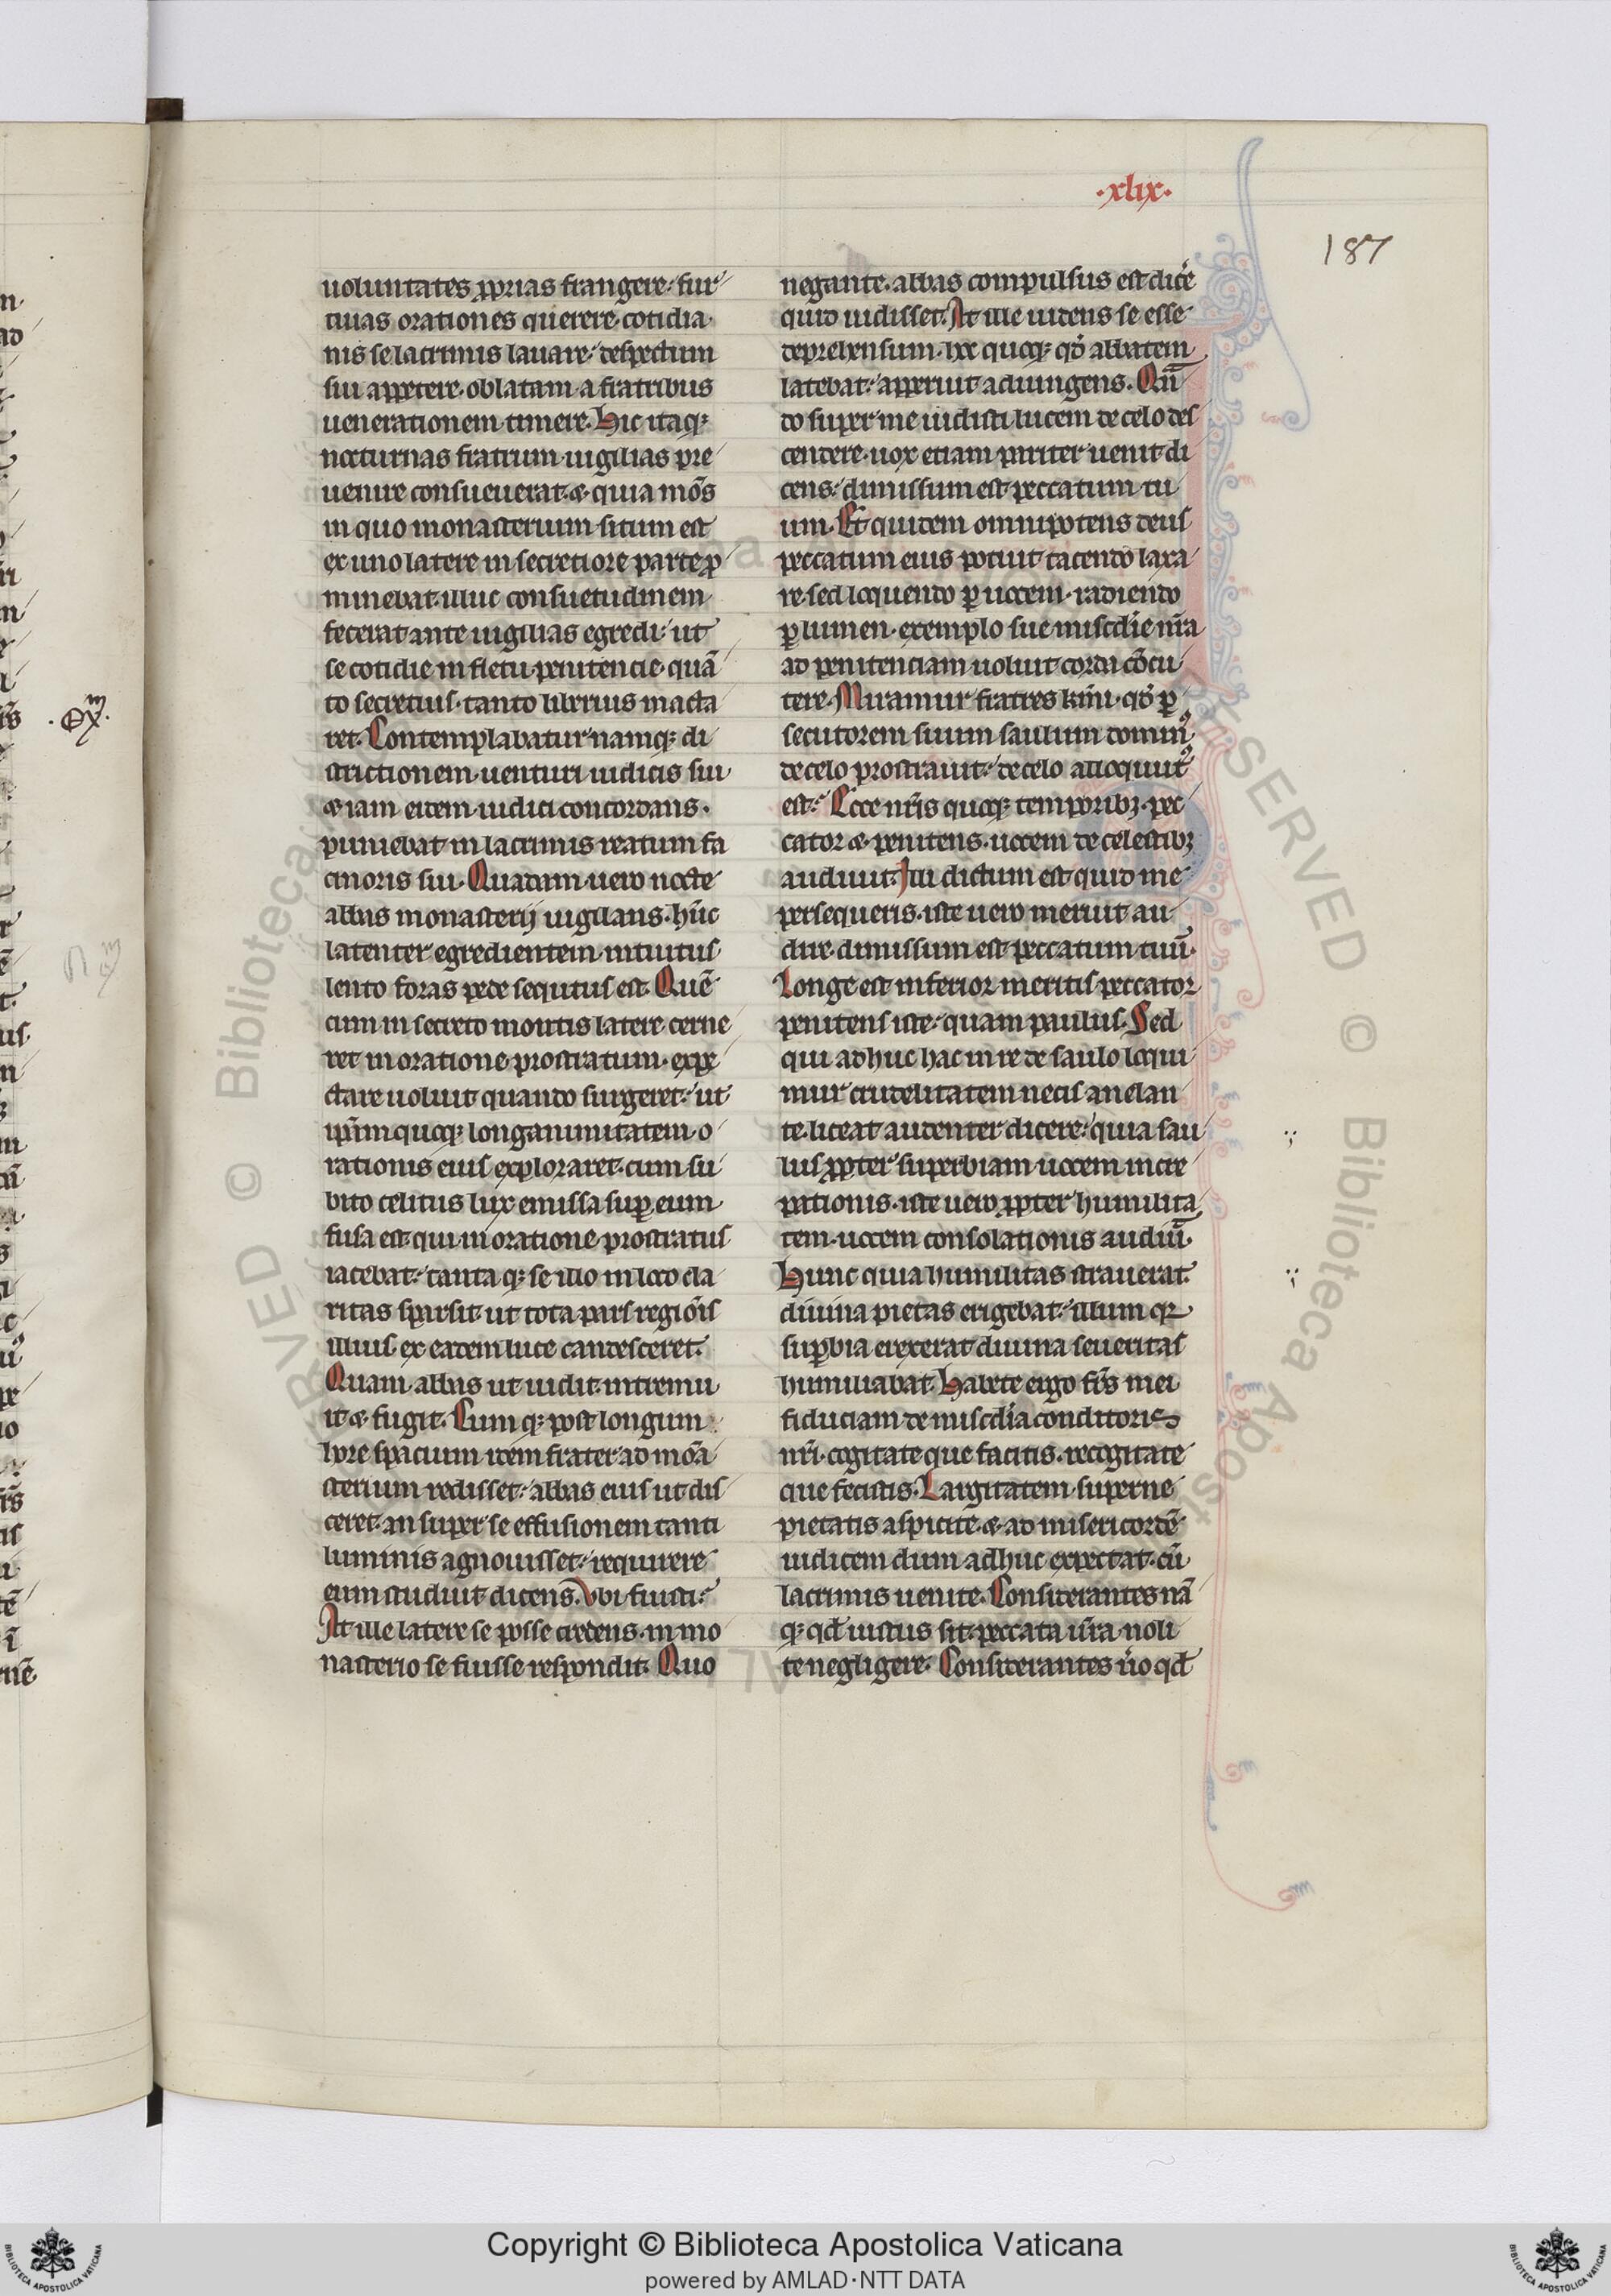 ·xlix·
187
uoluntates ꝓprias frangere· fur
tiuas orationes querere· cotidia
nis se lacrimis lauare· despectum
sui appetere· oblatam a fratribus
uenerationem timere. Hic itaq;
nocturnas fratrum uigilias pre
uenire consueuerat· & quia mōs
in quo monasterium situm est
ex uno latere in secretiore parte ꝓ
minebat· illuc consuetudinem
fecerat ante uigilias egredi· ut
se cotidie in fletu penitencie· quā
to secretius· tanto liberius macta
ret. Contemplabatur namq; di
strictionem uenturi iudicis sui
& iam eidem iudici concordans·
puniebat in lacrimis reatum fa
cinoris sui. Quadam uero nocte
abbas monasterij uigilans· hūc
latenter egredientem intuitus
lento foras pede sequtus est. Quē
cum in secreto montis latere cerne
ret in oratione prostratum· expe
ctare uoluit quando surgeret· ut
ip̄am quoq; longanimitatem o
rationis eius exploraret· cum su
bito celitus lux emissa suꝑ eum
fusa est· qui in oratione prostratus
iacebat· tanta q; se illo in loco cla
ritas sparsit· ut tota pars regiōis
illius ex eadem luce candesceret.
Quam abbas ut uidit· intremu
it & fugit. Cum q; post longum
hore spacium idem frater ad monā
sterium redisset· abbas eius ut dis
ceret· an super se effusionem tanti
luminis agnouisset· requirere
eum studuit dicens. Vbi fuisti?
At ille latere se posse credens· in mo
nasterio se fuisse respondit. Quo
negante· abbas compulsus est dicēe
quid uidisset. At ille uidens se esse
deprehensum· hoc quoq; qd̄ abbatem
latebat· apperuit adiungens. Quā
do super me uidisti lucem de celo des
cendere· uox etiam pariter uenit di
cens· dimissum est peccatum tu
um. Et quidem omnipotens deus
peccatum eius potuit tacendo laxa
re· sed loquendo ꝑ uocem· radiendo
ꝑ lumen· exemplo sue misc̄die nr̄a
ad penitenciam uoluit corda cōcu
tere. Miramur fratres kr̄mi· qd̄ ꝑ
secutorem suum saulum dominꝰ
de celo prostrauit· de celo allocqutꝰ
est? Ecce nr̄is quoq; temporibꝫ· pec
cator & penitens· uocem de celestibꝫ
audiuit. Illi dictum est quid me
persequeris· iste uero meruit au
dire· dimissum est peccatum tuū.
Longe est inferior meritis peccator
penitens iste· quam paulus. Sed
qui adhuc hac in re de saulo loqui
mur crudelitatem necis anelan
te· liceat audenter dicere· quia sau
lus ꝓpter superbiam uocem incre
pationis· iste uero ꝓpter humilita
tem· uocem consolationis audiu᷑.
Hunc quia humilitas strauerat·
diuina pietas erigebat· illum q;
suꝑbia erexerat diuina seueritas
humiliabat. Habete ergo fr̄s mei
fiduciam de misc̄dia conditoris
nr̄i· cogitate que facitis· recogitate
que fecistis. Largitatem superne
pietatis aspicite· & ad misericordē
iudicem dum adhuc expectat· cū
lacrimis uenite. Considerantes nā
q; qd̄ iustus sit· peccata ur̄a noli
te negligere. Considerantes ūo qd̄
Copyright © Biblioteca Apostolica Vaticana
powered by AMLAD·NTT DATA